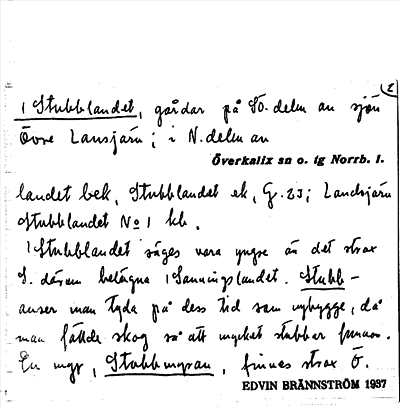 2
1 Stubblandet, gårdar på SO. delen av sjön
Övre Lansjärv; i N. delen av
Överkalix sn o. tg Norrb. l.
landet bek, Stubblandet ek, G. 25; Landsjärv
Stubblandet No 1 kb.
1 Stubblandet säges vara yngre än det strax
S. därom belägna 1 Sanningslandet. Stubb-
anser man tyda på dess tid som nybygge, då
man fällde skog så att mycket stubbar funnos.
En myr, Stubbmyran, finnes strax Ö.
EDVIN BRÄNNSTRÖM 1937